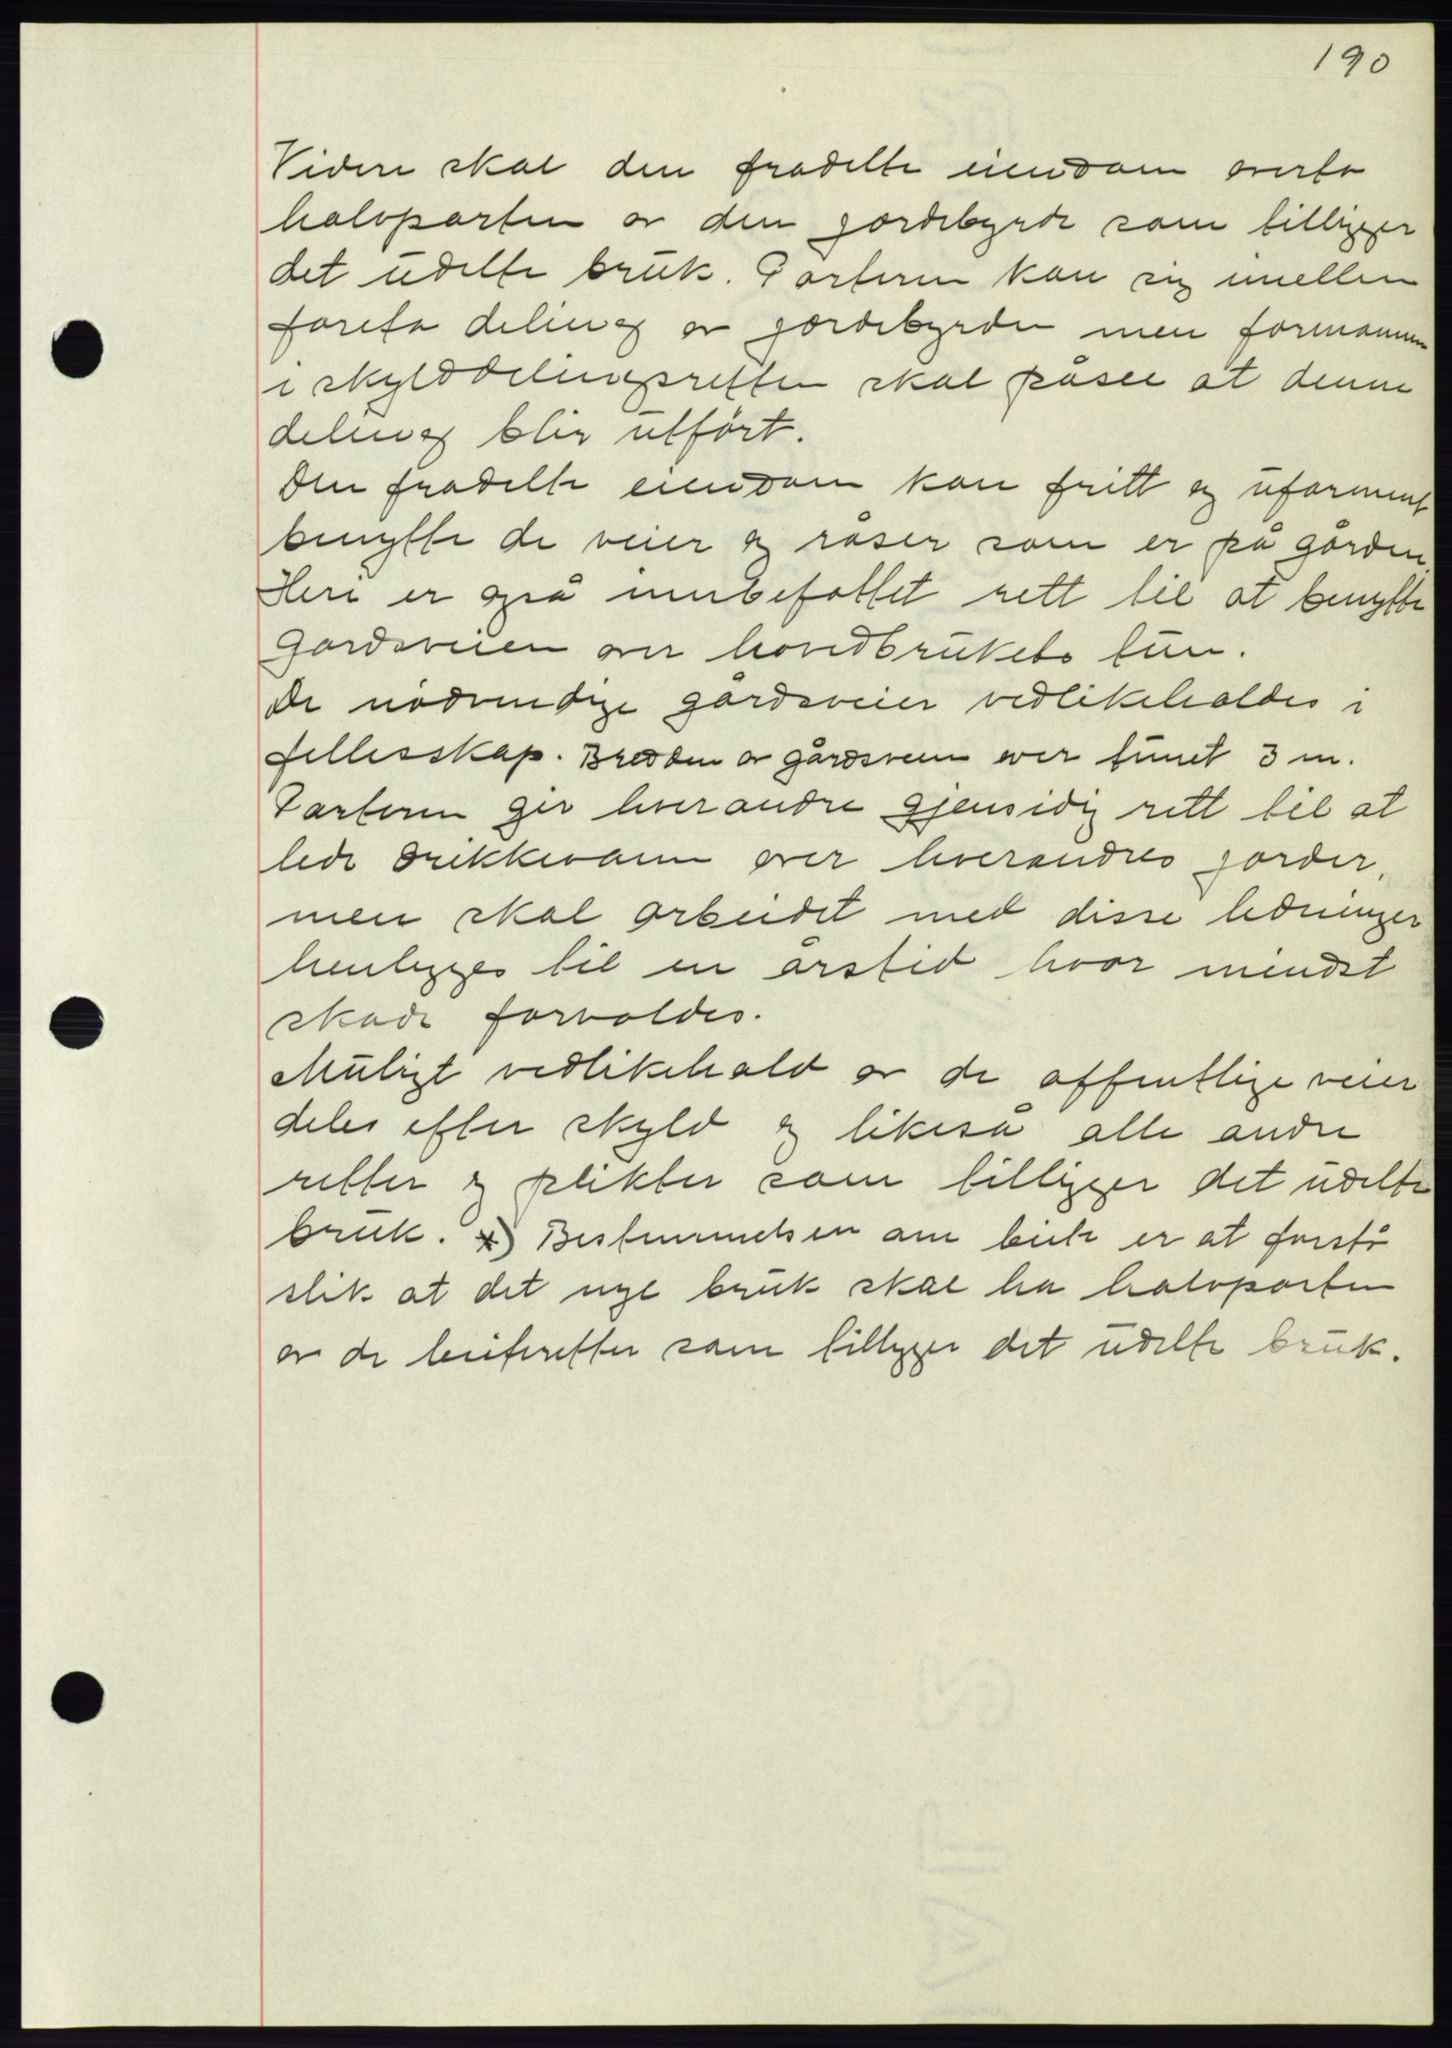 190
Videre skal den fradelte eiendom overta
halvparten av den gjerdebyrde som tilligger
det udelte bruk. Parterne kan sig imellem
foreta deling av gjerdebyrden men formannen
i skylddelingsretten skal påsee at denne
deling blir utført.
Den fradelte eiendom kan fritt og uforment
benytte de veier og råser som er på gården.
Heri er også innbefattet rett til at benytte
gardsveien over hovedbrukets tun.
De nødvendige gårdsveier vedlikeholdes i
fellesskap. Bredden av gårdsveien over tunet 3 m.
Parterne gir hverandre gjensidig rett til at
lede drikkevann over hverandres jorder,
men skal arbeidet med disse ledninger
henlegges til en årstid hvor mindst
skade forvoldes.
Muligt vedlikehold av de offentlige veier
deles efter skyld og likeså alle andre
retter og plikter som tilligger det udelte
bruk. *) Bestemmelsen om beite er at forstå
slik at det nye bruk skal ha halvparten
av de beiteretter som tilligger det udelte bruk.